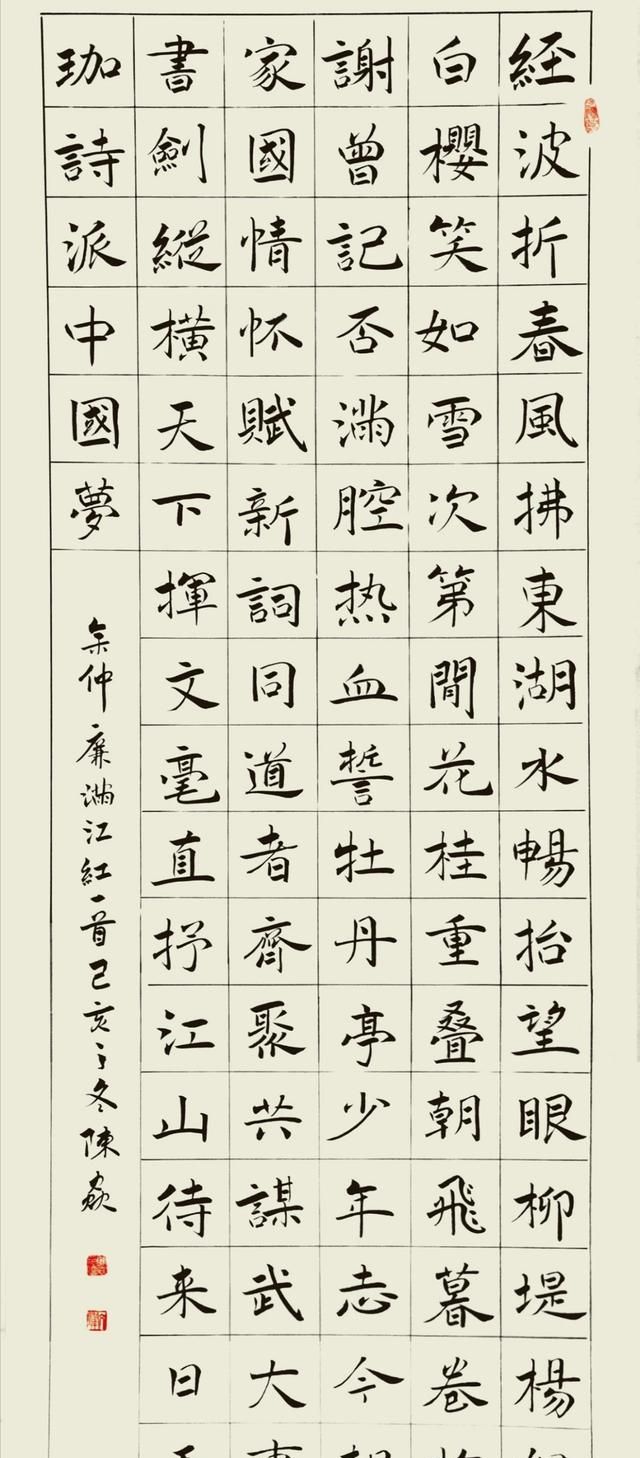 經波折春風拂東湖水暢抬望眼柳堤楊
白櫻笑如雪次第間花桂重叠朝飛暮卷
謝曾記否滿腔热血誓牡丹亭少年志今
家國情怀賦新詞同道者齊聚共謀武大
書劍縱橫天下揮文毫直抒江山待来日
珈詩派中國夢
余仲廉滿江紅一首己亥之冬陳焱